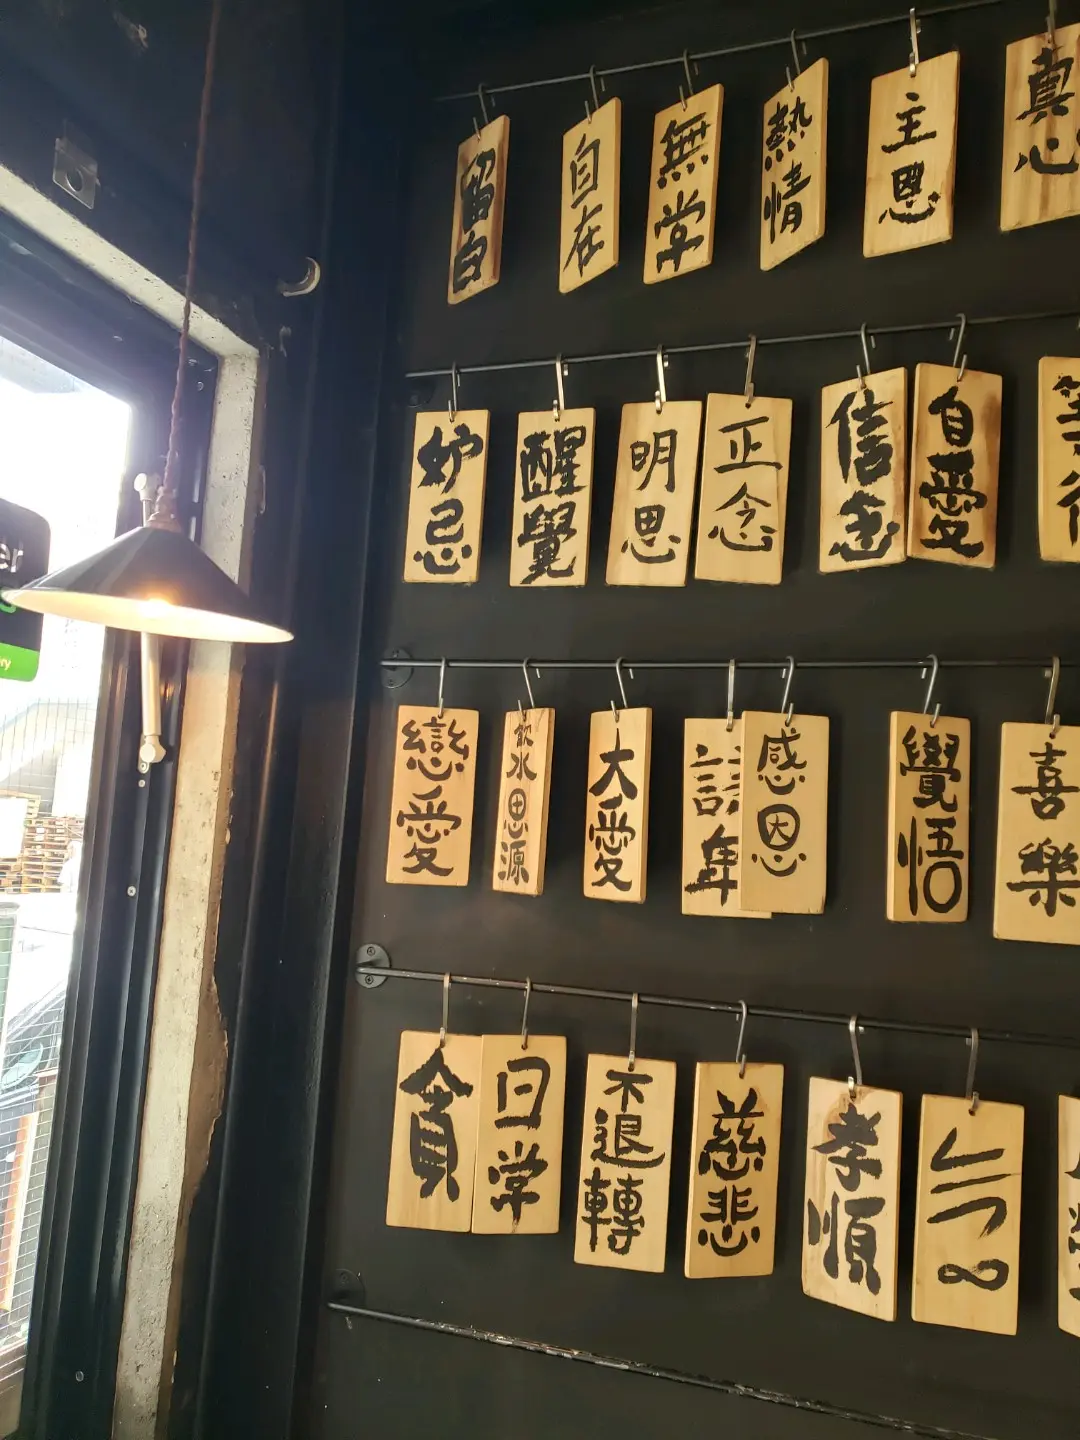 留白
自在
無常
熱情
主恩
真心
妒忌
醒覺
明思
正念
信念
自愛
戀愛
飲水思源
大愛
感恩
覺悟
喜樂
貪
日常
不退轉
慈悲
孝順
er